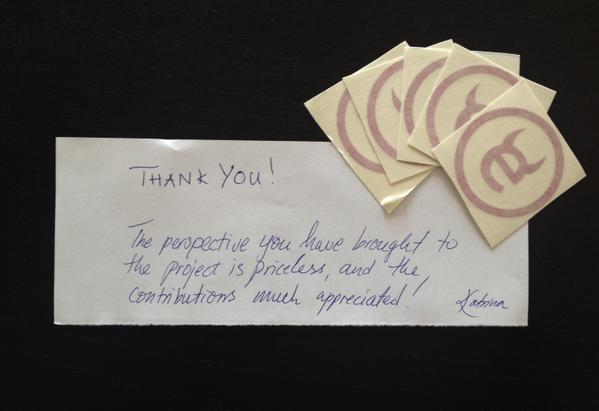 THANK YOU!
The perspective you have brought to
the project is priceless, and the
contributions much appreciated!
Katrina